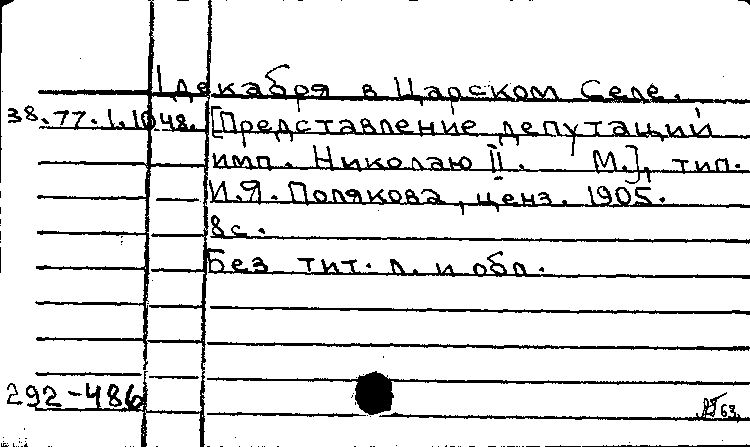 1 декабря в Царском Селе.
38.77.1.1048. [Представление депутаций
имп. Николаю II. М.], тип.
И.Я. Полякова, ценз. 1905.
8с.
Без тит. л. и обл.
292-486
63